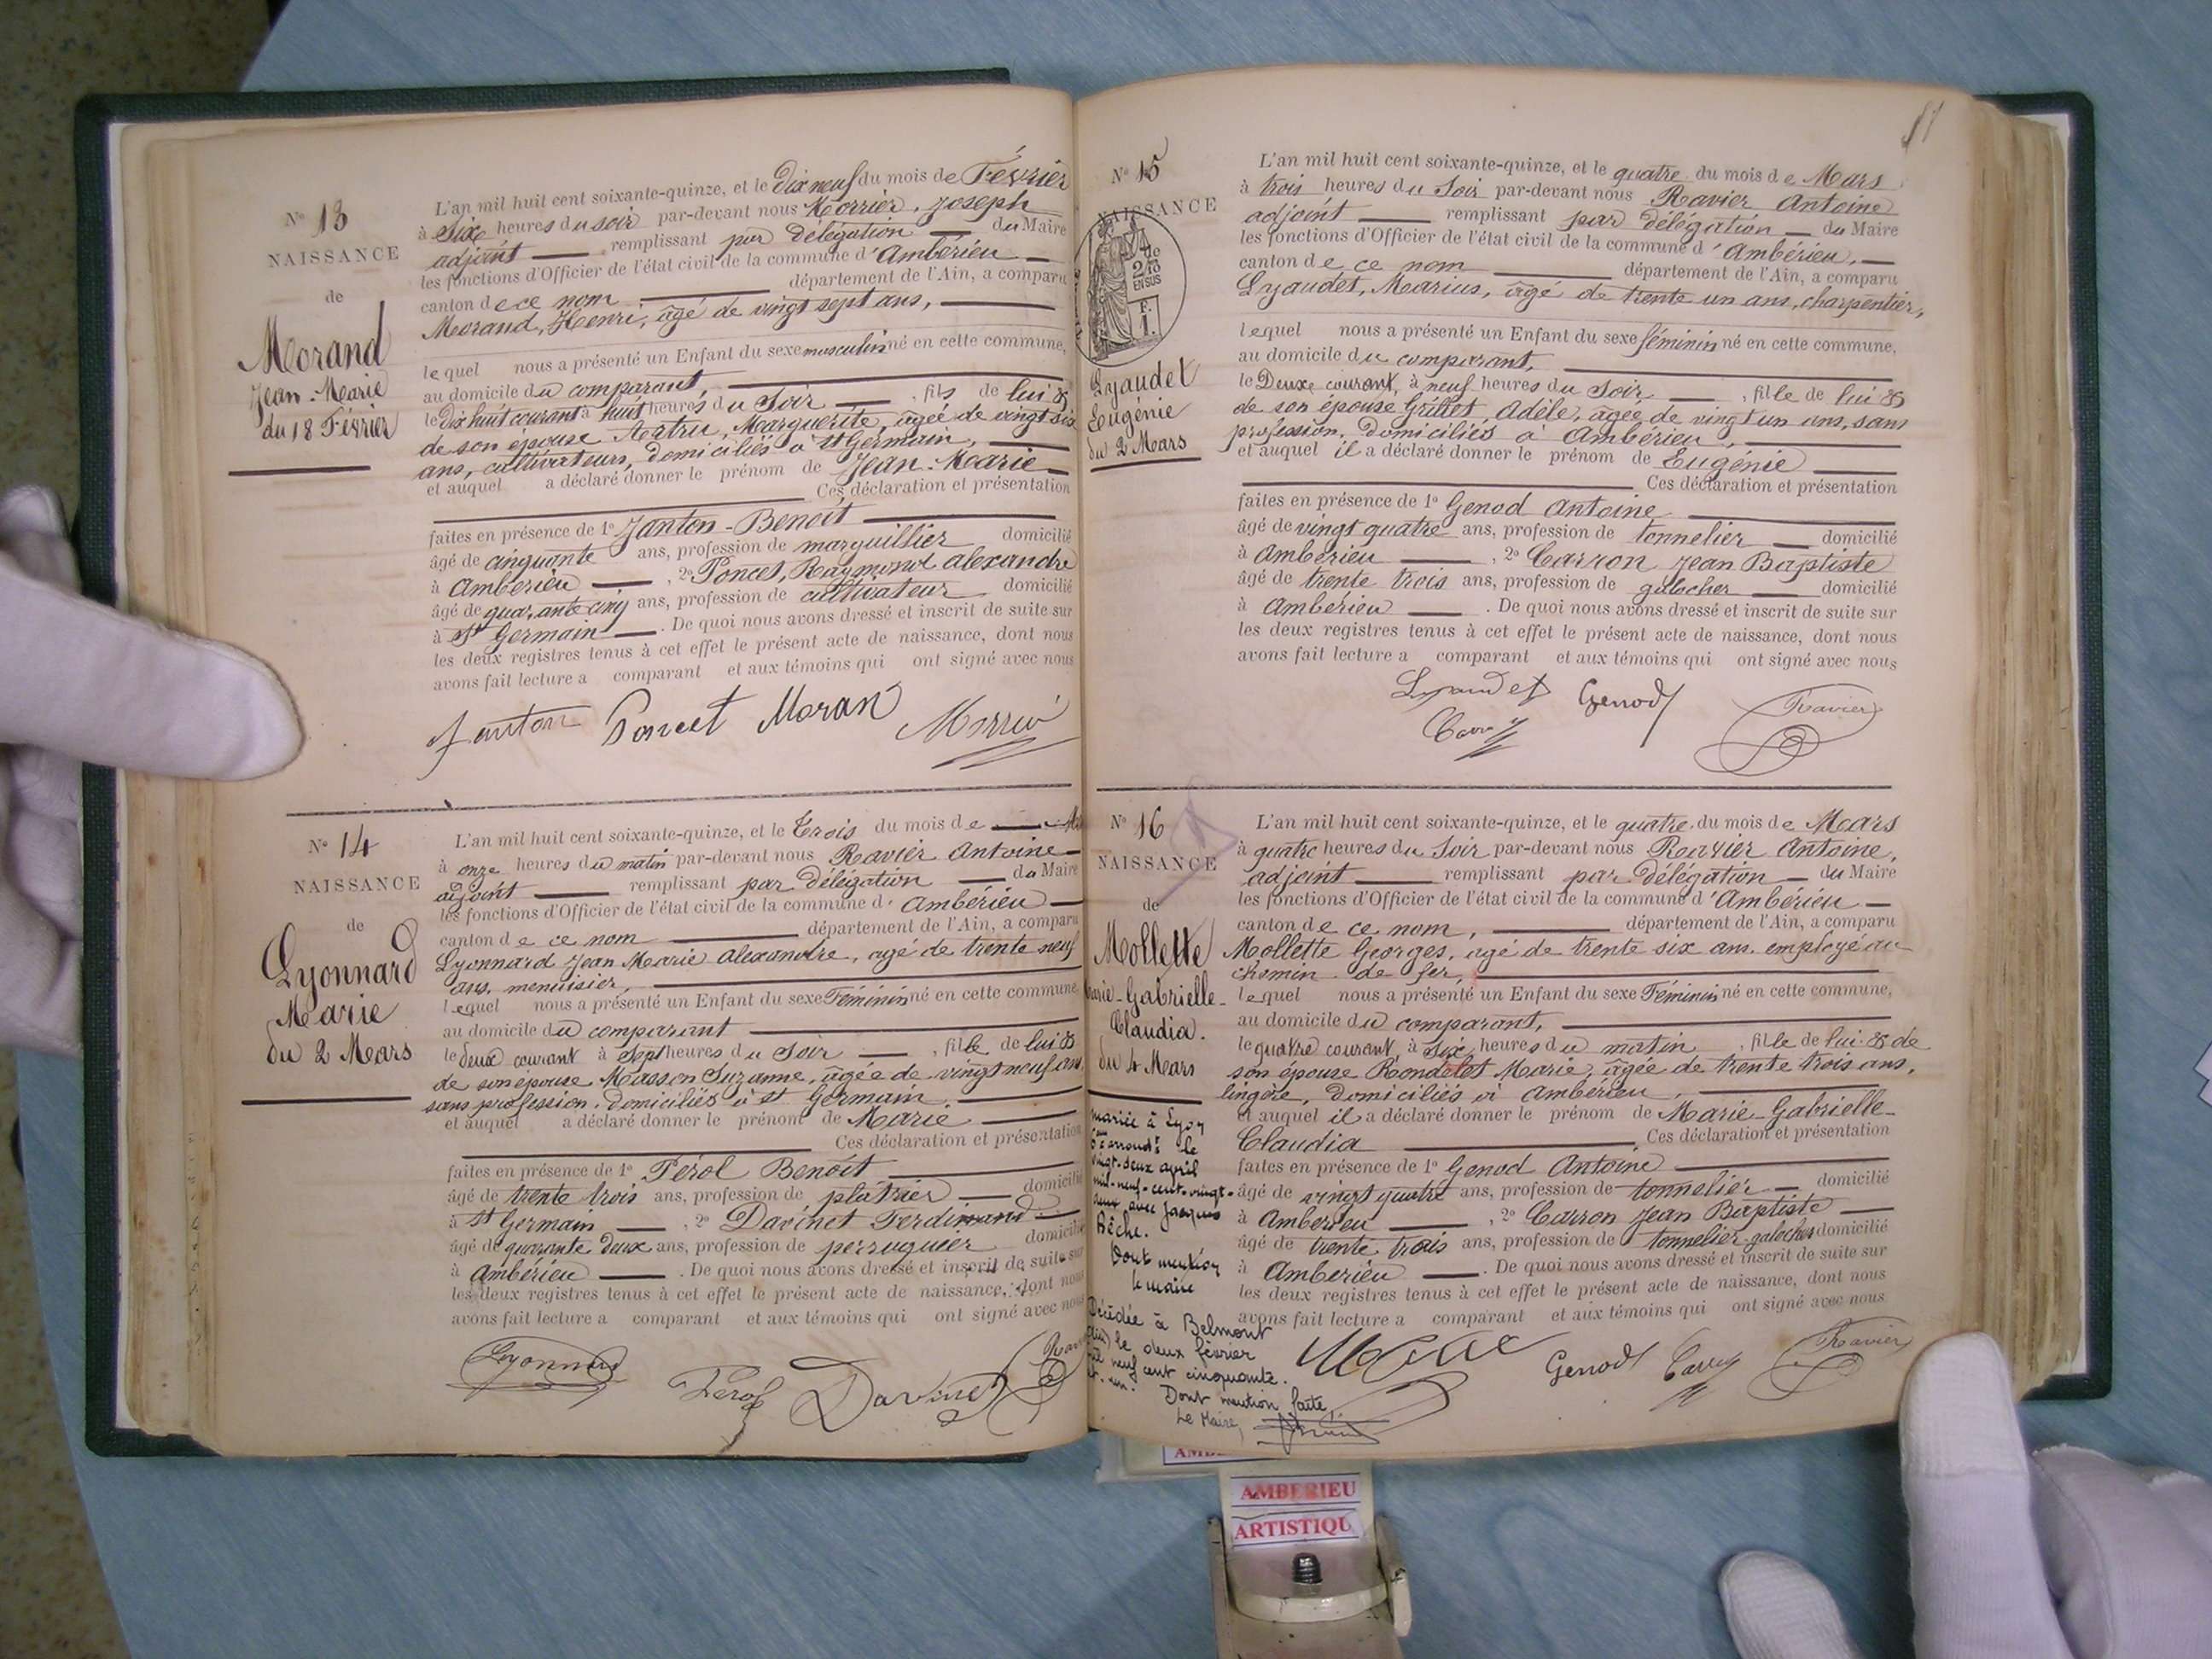 N° 13
NAISSANCE
de
Morand
Jean-Marie
du 18 Février
L'an mil huit cent soixante-quinze, et le Dix neuf du mois de Février
à Six heures du soir par-devant nous Morrier, Joseph
adjoint remplissant par délégation du Maire
les fonctions d'Officier de l'état civil de la commune d'Ambérieu
canton de ce nom département de l'Ain, a comparu
Morand, Henri, âgé de vingt sept ans,
lequel nous a présenté un Enfant du sexe masculin né en cette commune,
au domicile du comparant,
le Dix huit courant à huit heures du Soir, fils de lui &
de son épouse Marguerite, âgée de vingt six
ans, cultivateurs, domiciliés à St Germain,
et auquel a déclaré donner le prénom de Jean-Marie
Ces déclaration et présentation
faites en présence de 1° Janton-Benoît
âgé de cinquante ans, profession de marguillier domicilié
à Ambérieu, 2° Poncet, Raymond alexandre
âgé de quarante cinq ans, profession de cultivateur domicilié
à St Germain. De quoi nous avons dressé et inscrit de suite sur
les deux registres tenus à cet effet le présent acte de naissance, dont nous
avons fait lecture a comparant et aux témoins qui ont signé avec nous
Janton Poncet Moran
N° 14
NAISSANCE
de
Lyonnard
Marie
du 2 Mars
L'an mil huit cent soixante-quinze, et le Trois du mois de
à onze heures du matin par-devant nous Ravier Antoine
adjoint remplissant par délégation du Maire
les fonctions d'Officier de l'état civil de la commune d'Ambérieu
canton de ce nom département de l'Ain, a comparu
Lyonnard Jean Marie Alexandre, âgé de trente neuf
ans, menuisier,
lequel nous a présenté un Enfant du sexe Féminin né en cette commune,
au domicile du comparant
le deux courant à Sept heures du Soir, fille de lui &
de son épouse Masson Suzanne, âgée de vingt neuf ans
sans profession, domiciliés à St Germain
et auquel a déclaré donner le prénom de Marie
Ces déclaration et présentation
faites en présence de 1° Pérol Benoît
âgé de trente trois ans, profession de plâtrier domicilié
à St Germain, 2° Davinet Ferdinand
âgé de quarante deux ans, profession de perruquier domicilié
à Ambérieu. De quoi nous avons dressé et inscrit de suite sur
les deux registres tenus à cet effet le présent acte de naissance, dont nous
avons fait lecture a comparant et aux témoins qui ont signé avec nous
Lyonnard Pérol Davinet
N° 15
NAISSANCE
2/10
EN SUS
F.
1.
Lyaudet
Eugénie
du 2 Mars
L'an mil huit cent soixante-quinze, et le quatre du mois de Mars
à trois heures du Soir par-devant nous Ravier Antoine
adjoint remplissant par délégation du Maire
les fonctions d'Officier de l'état civil de la commune d'Ambérieu,
canton de ce nom département de l'Ain, a comparu
Lyaudet, Marius, âgé de trente un ans, charpentier,
lequel nous a présenté un Enfant du sexe féminin né en cette commune,
au domicile du comparant,
le Deux courant, à neuf heures du Soir, fille de lui &
de son épouse Grillet, Adèle, âgée de vingt un ans, sans
profession, domiciliés à Ambérieu,
et auquel il a déclaré donner le prénom de Eugénie
Ces déclaration et présentation
faites en présence de 1° Genod Antoine
âgé de vingt quatre ans, profession de tonnelier domicilié
à Ambérieu, 2° Carron Jean Baptiste
âgé de trente trois ans, profession de galocher domicilié
à Ambérieu. De quoi nous avons dressé et inscrit de suite sur
les deux registres tenus à cet effet le présent acte de naissance, dont nous
avons fait lecture a comparant et aux témoins qui ont signé avec nous
Lyaudet Genod Ravier
N° 16
NAISSANCE
de
Mollette
Marie-Gabrielle-
Claudia.
du 4 Mars
mariée à Lyon
6e arrondt le
vingt-deux avril
mil-neuf-cent-vingt-
deux avec Jacques
Bêche.
Dont mention
le maire
Décédée à Belmont
(Ain) le deux février
mil neuf cent cinquante.
et. un.
Dont mention faite
Le Maire,
L'an mil huit cent soixante-quinze, et le quatre du mois de Mars
à quatre heures du Soir par-devant nous Ravier Antoine,
adjoint remplissant par délégation du Maire
les fonctions d'Officier de l'état civil de la commune d'Ambérieu
canton de ce nom, département de l'Ain, a comparu
Mollette Georges, âgé de trente six ans, employé au
chemin de fer,
lequel nous a présenté un Enfant du sexe Féminin né en cette commune,
au domicile du comparant,
le quatre courant, à Six heures du matin, fille de lui & de
son épouse Rondelet Marie, âgée de trente trois ans,
lingère, domiciliés à Ambérieu,
et auquel il a déclaré donner le prénom de Marie-Gabrielle-
Claudia Ces déclaration et présentation
faites en présence de 1° Genod Antoine
âgé de vingt quatre ans, profession de tonnelier domicilié
à Ambérieu, 2° Carron Jean Baptiste
âgé de trente trois ans, profession de tonnelier galocher domicilié
à Ambérieu. De quoi nous avons dressé et inscrit de suite sur
les deux registres tenus à cet effet le présent acte de naissance, dont nous
avons fait lecture a comparant et aux témoins qui ont signé avec nous
Genod Ravier
AMBERIEU
ARTISTIQU